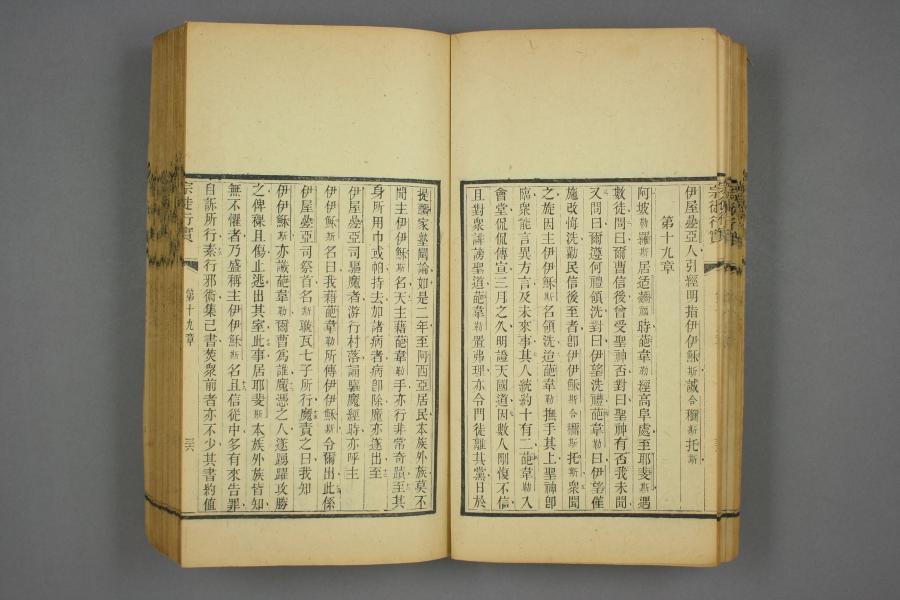 伊屋疊亞人引經明指伊伊穌斯誠合穪斯托斯
第十九章
阿坡勒羅斯居适時葩韋勒經高阜處至耶斐斯遇
數徒問曰爾曹信後曾受聖神否對曰聖神有否我未聞
又問曰爾遵何禮領洗對曰伊望洗禮葩韋勒曰伊望僅
施改悔洗勸民信後至者卽伊伊穌斯合穪斯托斯衆聞
之旋因主伊伊穌斯名領洗迨葩韋勒撫手其上聖神卽
臨衆能言異方言及未來事其人統約十有二葩韋勒入
會堂侃侃傳宣三月之久明證天國道因數人剛愎不信
且對衆誹謗聖道葩韋勒置弗理亦令門徒離其黨日於
家塾闡論如是二年至阿西亞居民本族外族莫不
聞主伊伊穌斯名天主藉葩韋勒手亦行非常奇蹟至其
身所用巾或帕持去加諸病者病卽除魔亦遂出至
伊屋疊亞司驅魔者游行村落誦驅魔經時亦呼主
伊伊穌斯名曰我藉葩韋勒所傳伊伊穌斯令爾出此係
伊屋疊亞司祭首名斯瓦七子所行魔責之曰我知
伊伊穌斯亦識葩韋勒爾曹爲誰魔憑之人遂踴躍攻勝
之俾裸且傷止逃出其室此事居耶斐斯本族外族皆知
無不懼者乃盛稱主伊伊穌斯名且信從中多有來告罪
自訴所行素行邪術集己書焚衆前者亦不少其書約值
宗徒行實
第十九章
宗徒行實